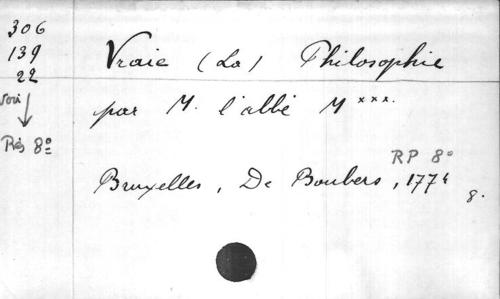 306
139
22
voir
Rés 8º
Vraie (La) Philosophie
par M. l'abbé M xxx.
RP 8º
Bruxelles, De Boubers, 1774
8.